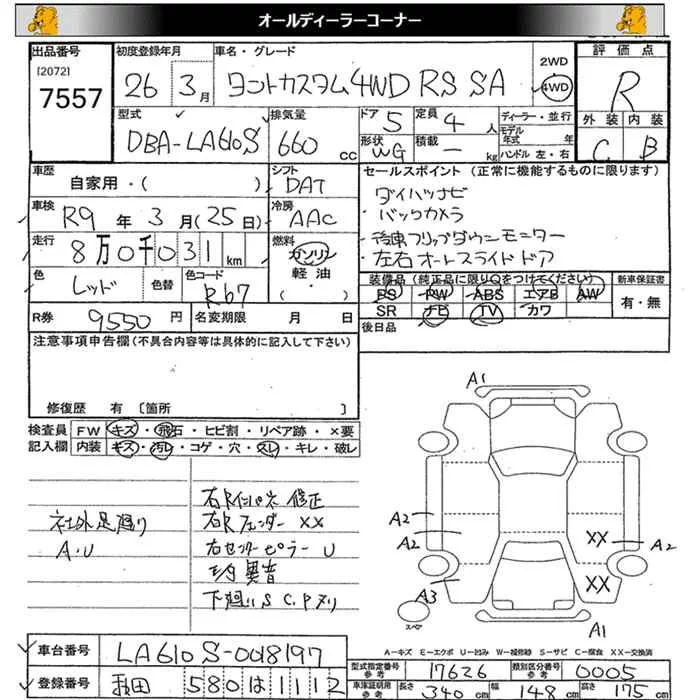 オールディーラーコーナー
出品番号 初度登録年月 車名・グレード 2WD 評価点
[2072]
7557 26 3月 タントカスタム4WD RS SA 4WD R
型式 排気量 ドア 定員 ディーラー・並行 外装 内装
DBA-LA610S 660cc 5 4人 モデル年式 年 C B
形状 積載 ハンドル 左・右
WG ー kg
車歴 シフト セールスポイント (正常に機能するものに限ります)
自家用・( ) DAT ダイハツナビ
車検 冷房 ・バックカメラ
R9年3月(25日) AAC ・後車フリップダウンモニター
走行 燃料 ・左右オートスライドドア
8万0千031km ガソリン
軽油
・( )
色 色替 色コード 装備品(純正品に限り○をつけてください) 新車保証書
レッド R67 PS PW ABS エアB AW 有・無
SR ナビ TV カワ
R券 9550円 名変期限 月 日 後日品
注意事項申告欄(不具合内容等は具体的に記入して下さい)
修復歴 有 〔箇所 〕
検査員 FW キズ・飛石・ヒビ割・リペア跡・×要
記入欄 内装 キズ・汚レ・コゲ・穴・スレ・キレ・破レ
社外足廻り
A・U
右Rインパネ 修正
右Rフェンダー XX
右センターピラー U
異音
下廻りS C.Pヌリ
A1
A2
A2
XX
A2
A3
XX
スペア
A1
A-キズ E-エクボ U-凹み W-補修跡 S-サビ C-腐食 XX-交換済
車台番号 LA610S-0018197
登録番号 580 は 1112
型式指定番号 参考 17626 類別区分番号 参考 0005
車庫証明用 参考 長さ 340cm 幅 148cm 高さ 175cm